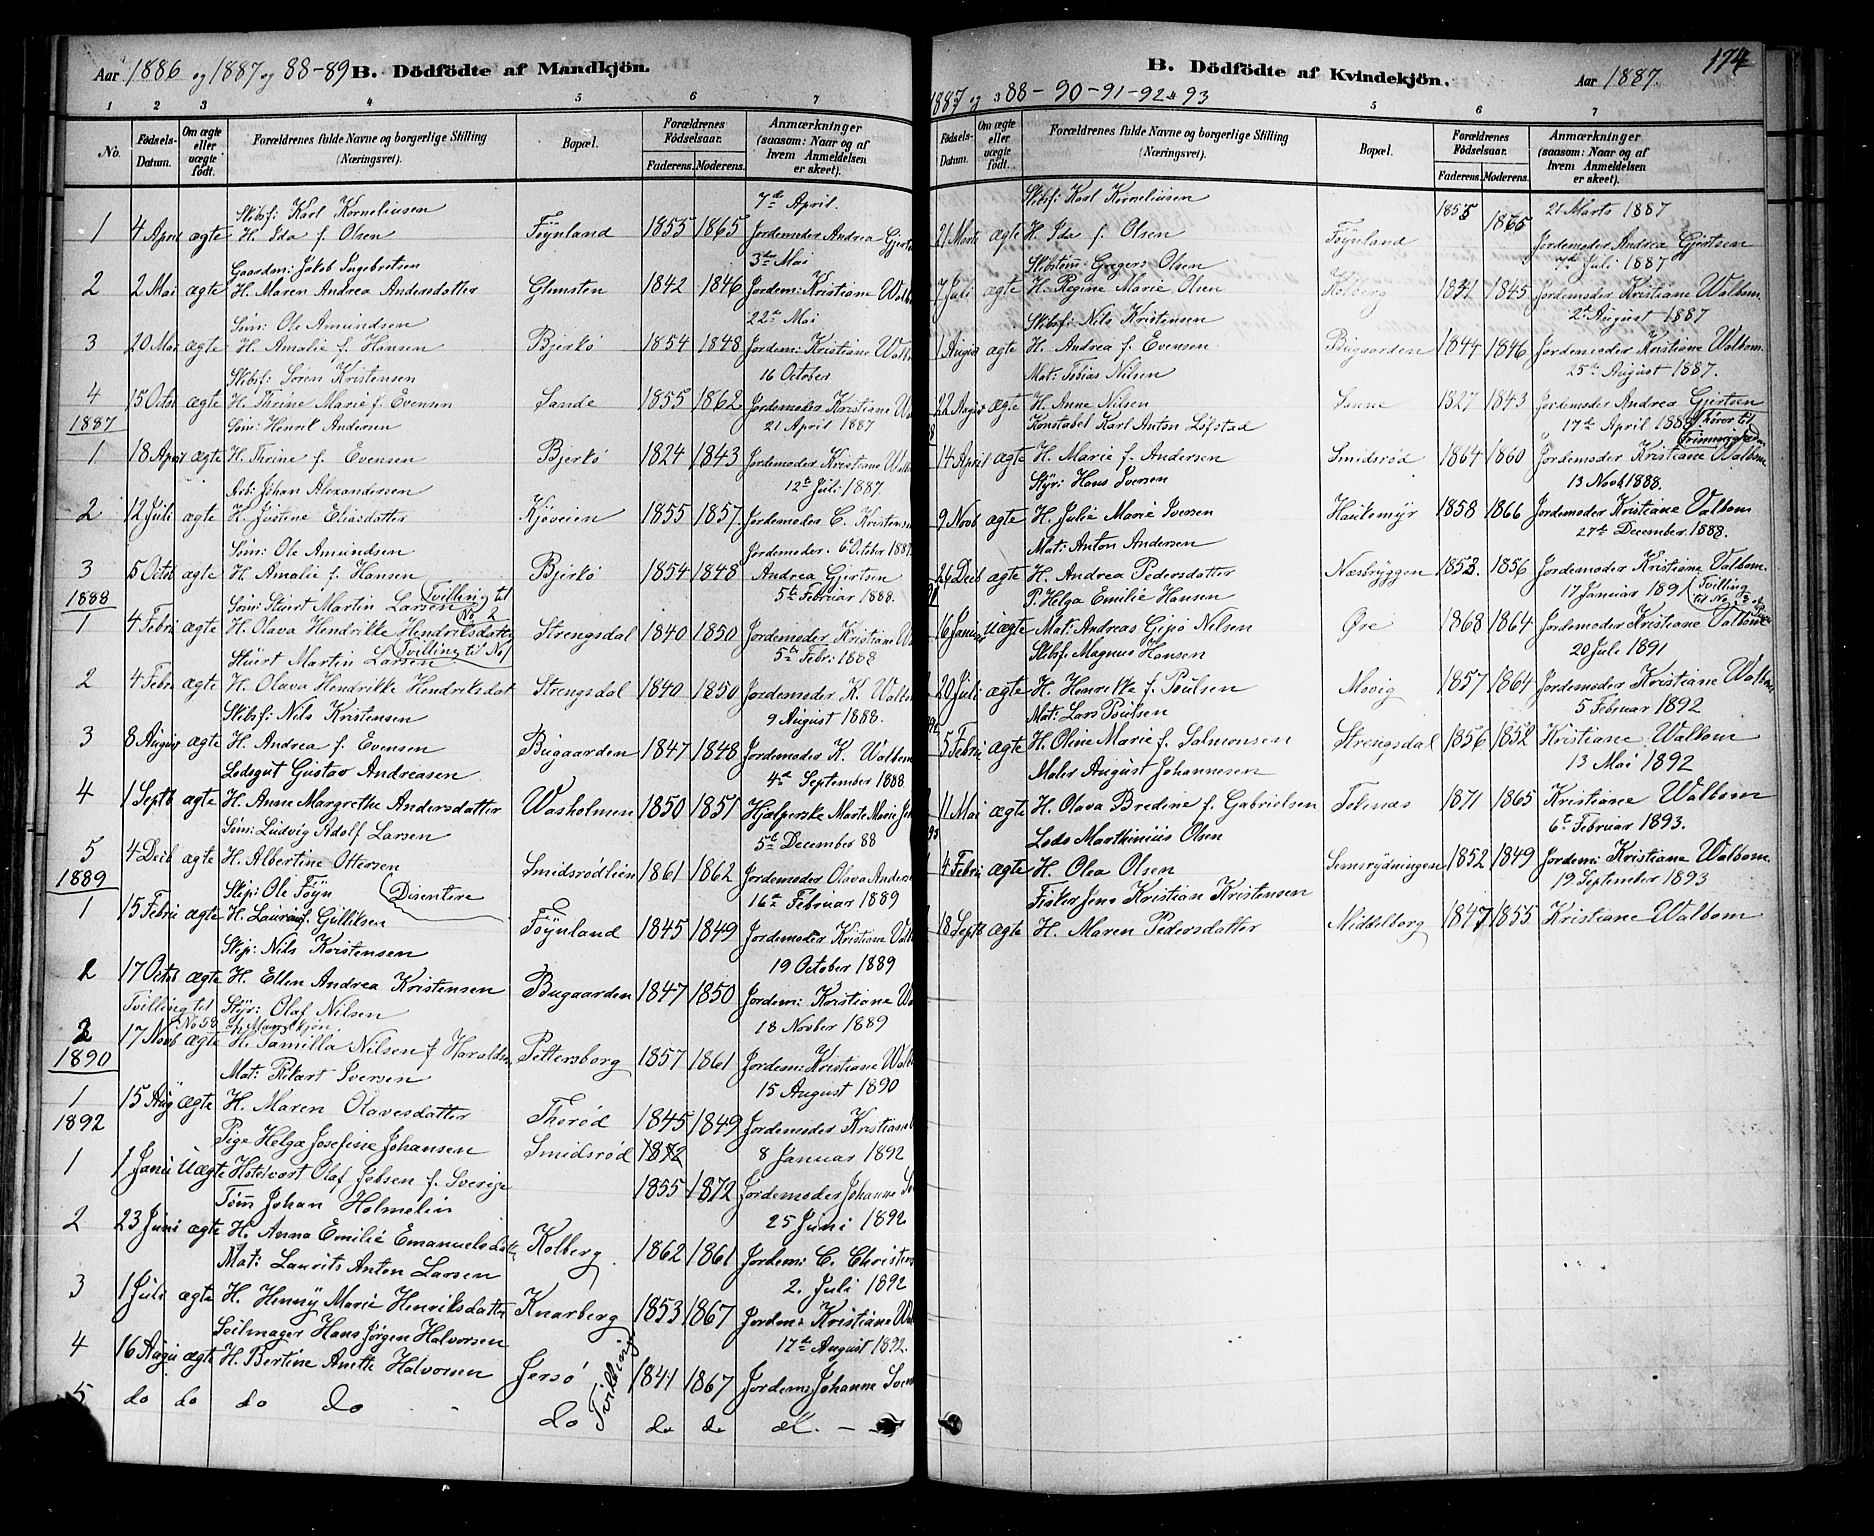 Aar 1886 og 1887 og 88-89 B. Dödfödte af Mandkjön.
1 2 3 4 5 6 7
No. Fødsels-Datum. Om ægte eller uægte født. Forældrenes fulde Navne og borgerlige Stilling (Næringsvei). Bopæl. Forældrenes Fødselsaar. Faderens. Moderens. Anmærkninger (saasom: Naar og af hvem Anmeldelsen er skeet).
Skibsf: Karl Korneliusen 7de April.
1 4 April ægte H. Ida f. Olsen Føynland 1855 1865 Jordemoder Andrea Gjerts
Gaardm: Jakob Ingebretsen 3de Mai
2 2 Mai ægte H. Maren Andrea Andersdatter Glomsten 1842 1846 Jordem: Kristiane Walb
Søm: Ole Amundsen 22de Mai
3 20 Mai ægte H. Amalie f. Hansen Bjerkö 1854 1848 Jordem: Kristiane Walbom
Skibsf: Søren Kristensen 16 October
4 15 Octob ægte H. Thrine Marie f. Evensen Sande 1855 1862 Jordemoder Kristiane W
1887 Søm: Henrik Andersen 21 April 1887
1 18 April ægte H. Thrine f. Evensen Bjerkö 1824 1843 Jordemoder Kristiane Walb
Arb: Johan Alexandersen 12te Juli 1887.
2 12 Juli ægte H. Jostine Eliasdatter Kjøveien 1855 1857. Jordemoder C. Kristensen
Søm: Ole Amundsen Jordemoder. 6 October 1887
3 5 Octob ægte H. Amalie f. Hansen Bjerkö 1854 1848 Andrea Gjertsen
1888 Søm: Stüert Martin Larsen Tvilling til No 2 5te Februar 1888.
1 4 Febri ægte H. Olava Hendrikke Hendriksdatter Strengsdal 1840 1850 Jordemoder Kristiane W
Stüert Martin Larsen Tvilling til No 1 5te Febri 1888
2 4 Febr ægte H. Olava Hendrikke Hendriksdat Strengsdal 1840 1850 Jordemoder K. Walb
Skibsf: Nils Kristensen 9 August 1888.
3 8 August ægte H. Andrea f. Evensen Bugaarden 1847 1848 Jordemoder K. Walbom
Lodsgut Gustav Andreasen 4de September 1888
4 1 Septb ægte H. Anne Margrethe Andersdatter Washolmen 1850 1851 Hjælperske Marte Marie
Søm: Ludvig Adolf Larsen 5te December 88
5 4 Decb ægte H. Albertine Ottersen Smidsrødlien 1861 1862 Jordemoder Olava Anders
1889 Skip: Ole Føyn Disentere 16de Februar 1889
1 15 Febri ægte H. Laura f. Gulliksen Føynland 1845 1849 Jordemoder Kristiane Walb
Skp: Nils Kristensen 19 October 1889
2 17 Octob ægte H. Ellen Andrea Kristensen Bugaarden 1847 1850 Jordem: Kristiane W
Tvilling til No 58 Mandkjøn. Styr: Olaf Nilsen 18 Novber 1889
3 17 Novb ægte H. Tamilla Nilsen f Haralds Pettersborg 1857 1861 Jordem: Kristiane Walb
1890 Mat: Rikart Iversen 15 August 1890
1 15 Aug ægte H. Maren Olavesdatter Thorød 1845 1849 Jordemoder Kristiane
1892 Pige Helga Josefine Johansen Smidsrød 1872 8 Januar 1892
1 1 Janu Uægte Hotelvært Olaf Jebsen f. Sverige 1855 1872 Jordemoder Johanne
Tøm: Johan Holmelin 25 Juni 1892
2 23 Juni ægte H. Anna Emilie Emanuelsdatt Kolberg 1862 1861 Jordem: C. Christens
Mat: Laurits Anton Larsen 2. Juli 1892
3 1 Juli ægte H. Henny Marie Henriksdatter Knarberg 1853 1867 Jordem: Kristiane W
Seilmager Hans Jørgen Halvorsen 17de August 1892.
4 16 Augu ægte H. Bertine Anette Halvorsen Jersø Tvilling 1841 1867 Jordem: Johanne
5 do do do do do do do
174
B. Dödfödte af Kvindekjön. Aar 1887.
1887 og 88 - 90 - 91 - 92 & 93
3 5 6 7
Fødsels-Datum. Om ægte eller uægte født. Forældrenes fulde Navne og borgerlige Stilling (Næringsvei). Bopæl. Forældrenes Fødselsaar. Faderens. Moderens. Anmærkninger (saasom: Naar og af hvem Anmeldelsen er skeet).
Skibsf: Karl Korneliusen 1855 1865 21 Marts 1887
21 Marts ægte H. Ida f. Olsen Føynland Jordemoder Andrea Gjertsen
Skibstøm: Gregers Olsen 7de Juli 1887
7 Juli ægte H. Regine Marie Olsen Kolberg 1841 1845 Jordemoder Kristiane Walbom.
Skibsf: Nils Kristensen 2de August 1887
1 August ægte H. Andrea f. Evensen Bugaarden 1844 1846 Jordemoder Kristiane Walbom.
Mat: Tobias Nilsen 25de August 1887.
22 August ægte H. Anne Nilsen Sanne 1827 1843 Jordemoder Andrea Gjertsen
Konstabel Karl Anton Løfstad 17de April 1888 hører til Frimenigheden
14 April ægte H. Marie f. Andersen Smidsrød 1864 1860 Jordemoder Kristiane Walbom
Styr: Hans Iversen 13 Novb 1888.
9 Novb ægte H. Julie Marie Iversen Haukemyr 1858 1866 Jordemoder Kristiane Valbom
Mat: Anton Andersen 27de December 1888.
24 Decb ægte H. Andrea Pedersdatter Næsbryggen 1853. 1856 Jordemoder Kristiane Valbom.
P. Helga Emilie Hansen 17 Januar 1891 Tvilling til No 3
16 Januar Uægte Mat: Andreas Gipø Nilsen Øre 1868 1864 Jordemoder Kristiane Valbom
Skibsf: Magnus Hansen 20 Juli 1891
20 Juli ægte H. Henrikke f. Poulsen Movig 1857 1864 Jordemoder Kristiane Walbom
Mat: Lars Poulsen 5 Februar 1892
5 Febri ægte H. Oline Marie f. Salmonsen Strengsdal 1856 1852 Kristiane Walbom
Maler August Johannesen 13 Mai 1892
11 Mai ægte H. Olava Bredine f. Gabrielsen Teknæs 1871 1865 Kristiane Walbom
Lods Marthinius Olsen 6te Februar 1893.
4 Febri ægte H. Olea Olsen Semsrydningen 1852 1849 Jordem: Kristiane Walbom.
Fisker Jens Kristian Kristensen 19 September 1893
18 Septb ægte H. Maren Pedersdatter Middelborg 1847 1855 Kristiane Walbom